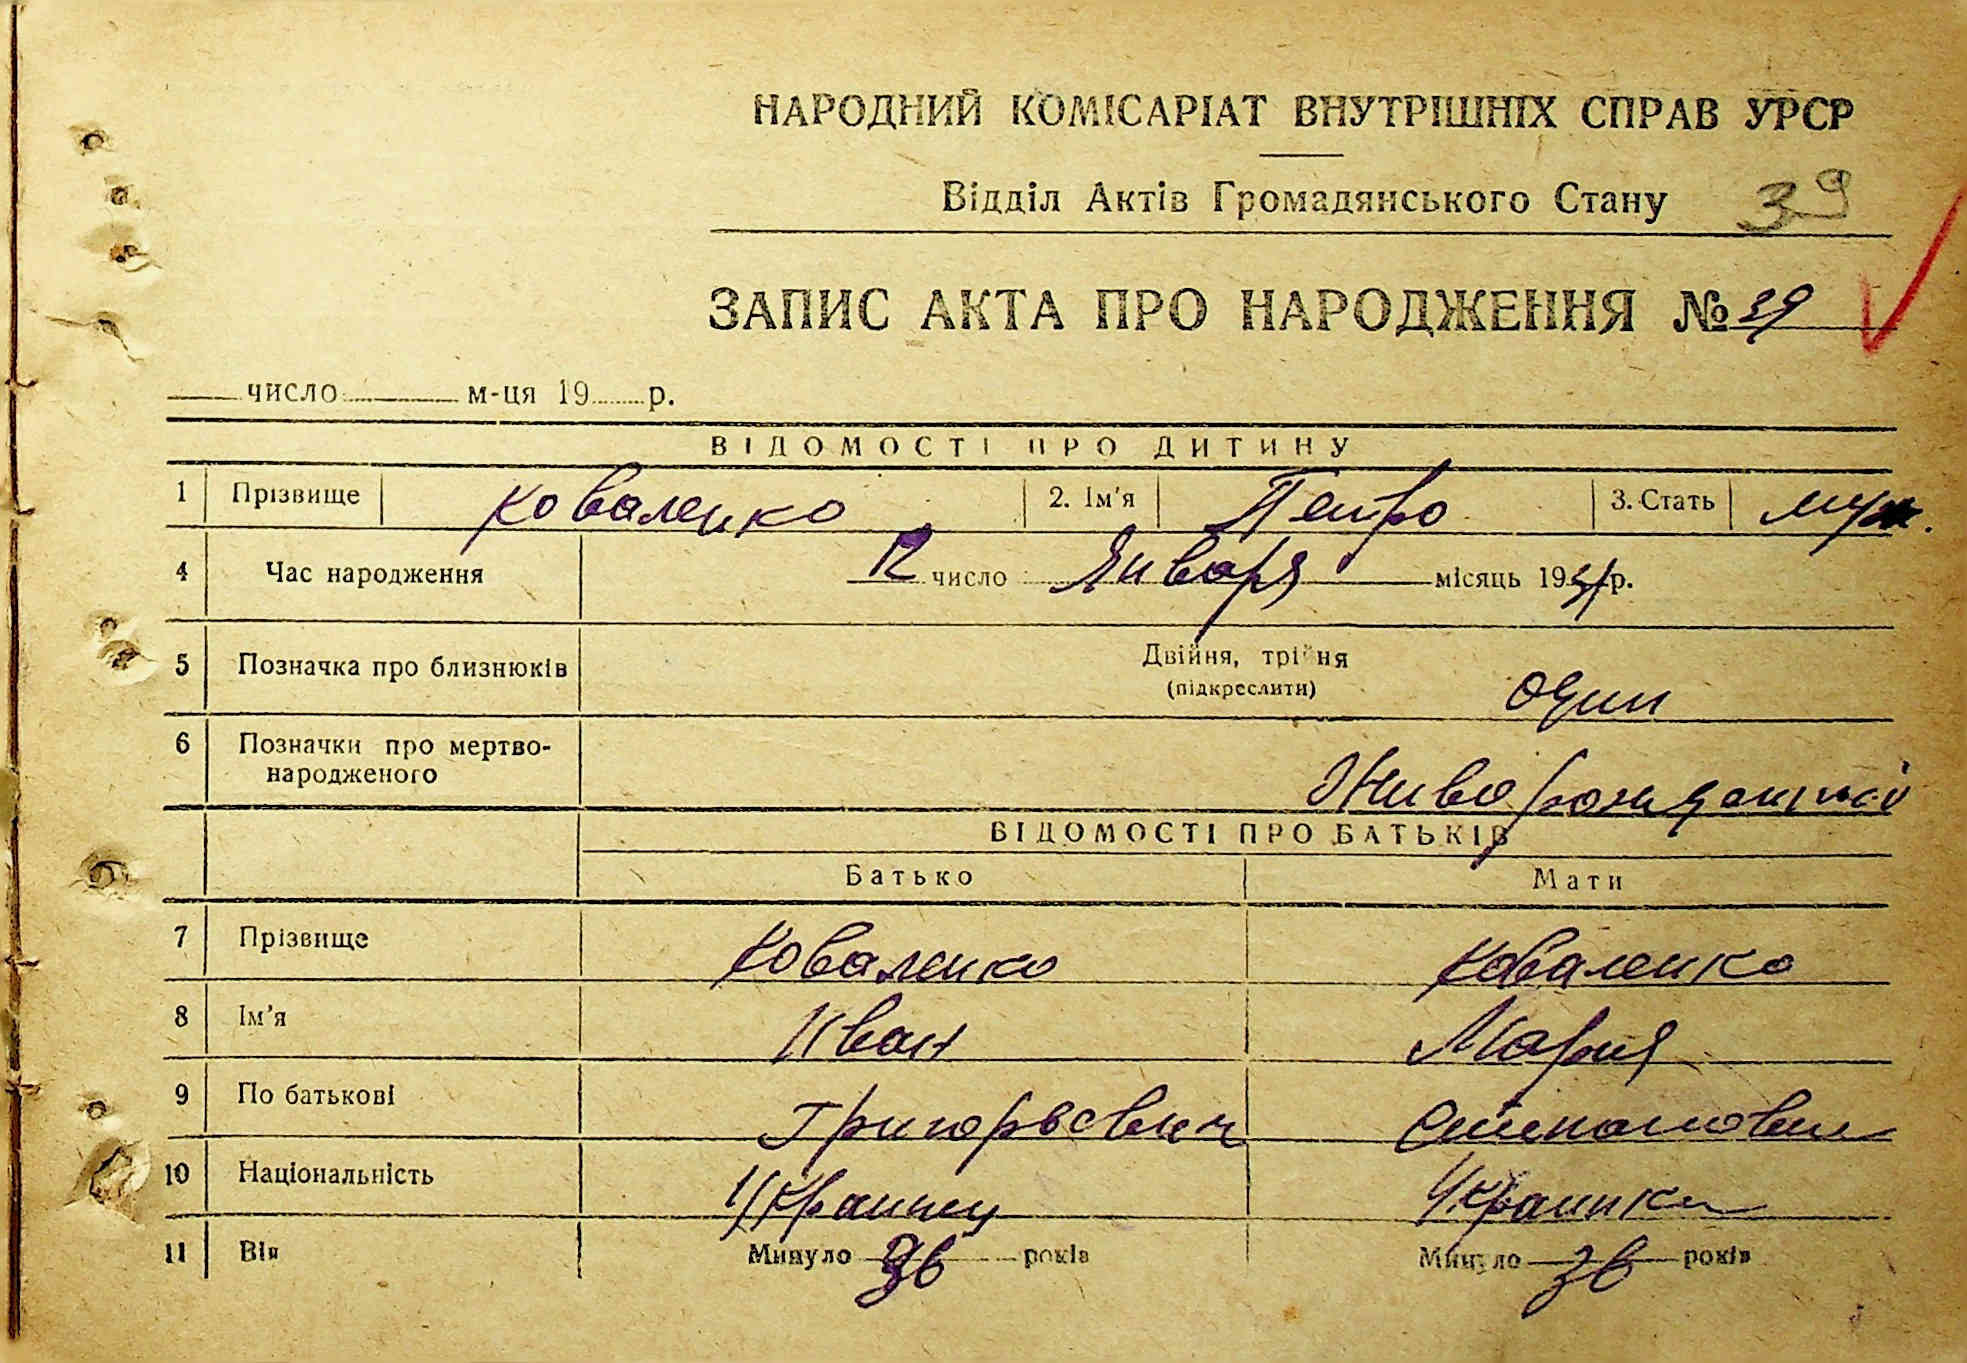 НАРОДНИЙ КОМІСАРІАТ ВНУТРІШНІХ СПРАВ УРСР
Відділ Актів Громадянського Стану 39
ЗАПИС АКТА ПРО НАРОДЖЕННЯ № 39
число м-ця 19 р.
ВІДОМОСТІ ПРО ДИТИНУ
1 Прізвище Коваленко 2. Ім'я Петро 3. Стать муж.
4 Час народження 12 число Января місяць 19 р.
5 Позначка про близнюків Двійня, трійня (підкреслити) один
6 Позначки про мертвонародженого Живорожденный
ВІДОМОСТІ ПРО БАТЬКІВ
Батько Мати
7 Прізвище Коваленко Коваленко
8 Ім'я Иван Мария
9 По батькові Григорьевич Степановна
10 Національність Украинец Украинка
11 Вік Минуло 36 років Минуло 36 років